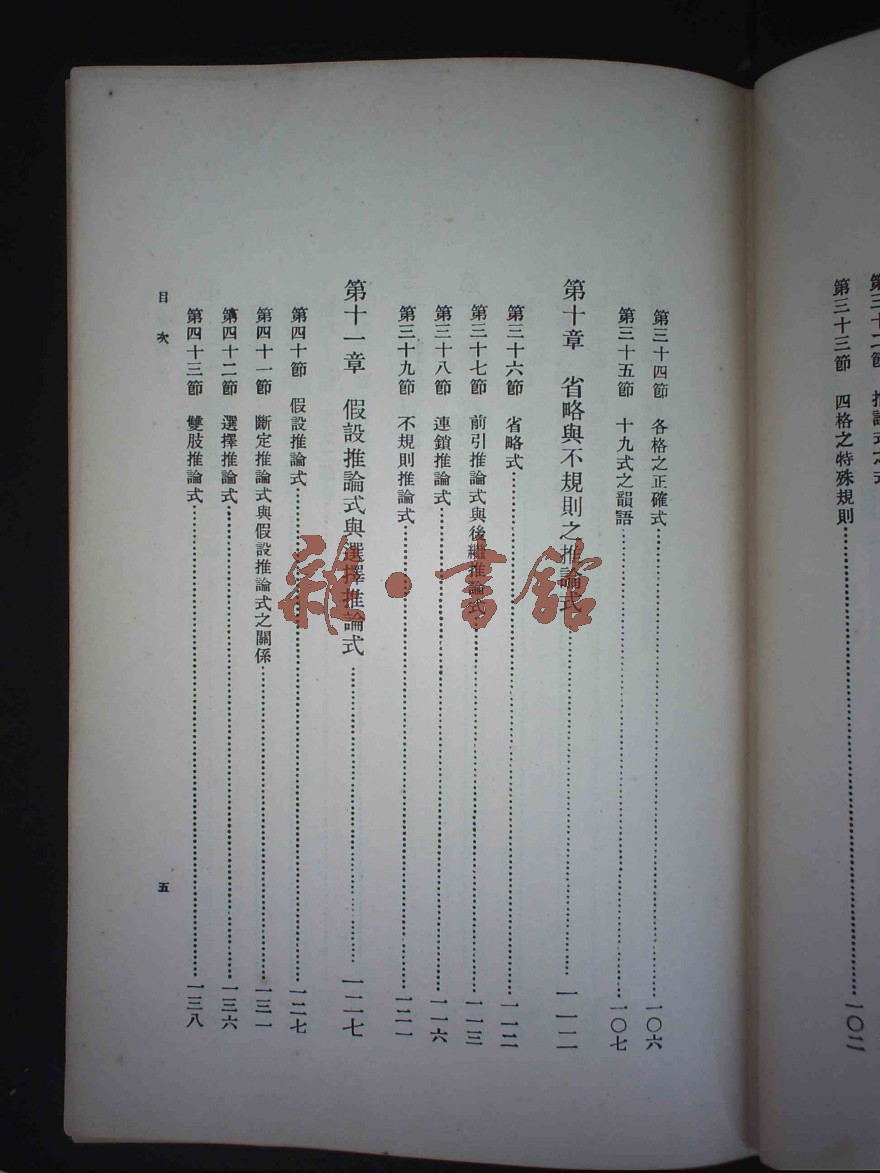 第三十三節　四格之特殊規則……一〇二
第三十四節　各格之正確式……一〇六
第三十五節　十九式之韻語……一〇七
第十章　省略與不規則之推論式……一一二
第三十六節　省略式……一一二
第三十七節　前引推論式與後繼推論式……一一三
第三十八節　連鎖推論式……一一六
第三十九節　不規則推論式……一二一
第十一章　假設推論式與選擇推論式……一二七
第四十節　假設推論式……一二七
第四十一節　斷定推論式與假設推論式之關係……一三一
第四十二節　選擇推論式……一三六
第四十三節　雙肢推論式……一三八
目次　五
雜·書館